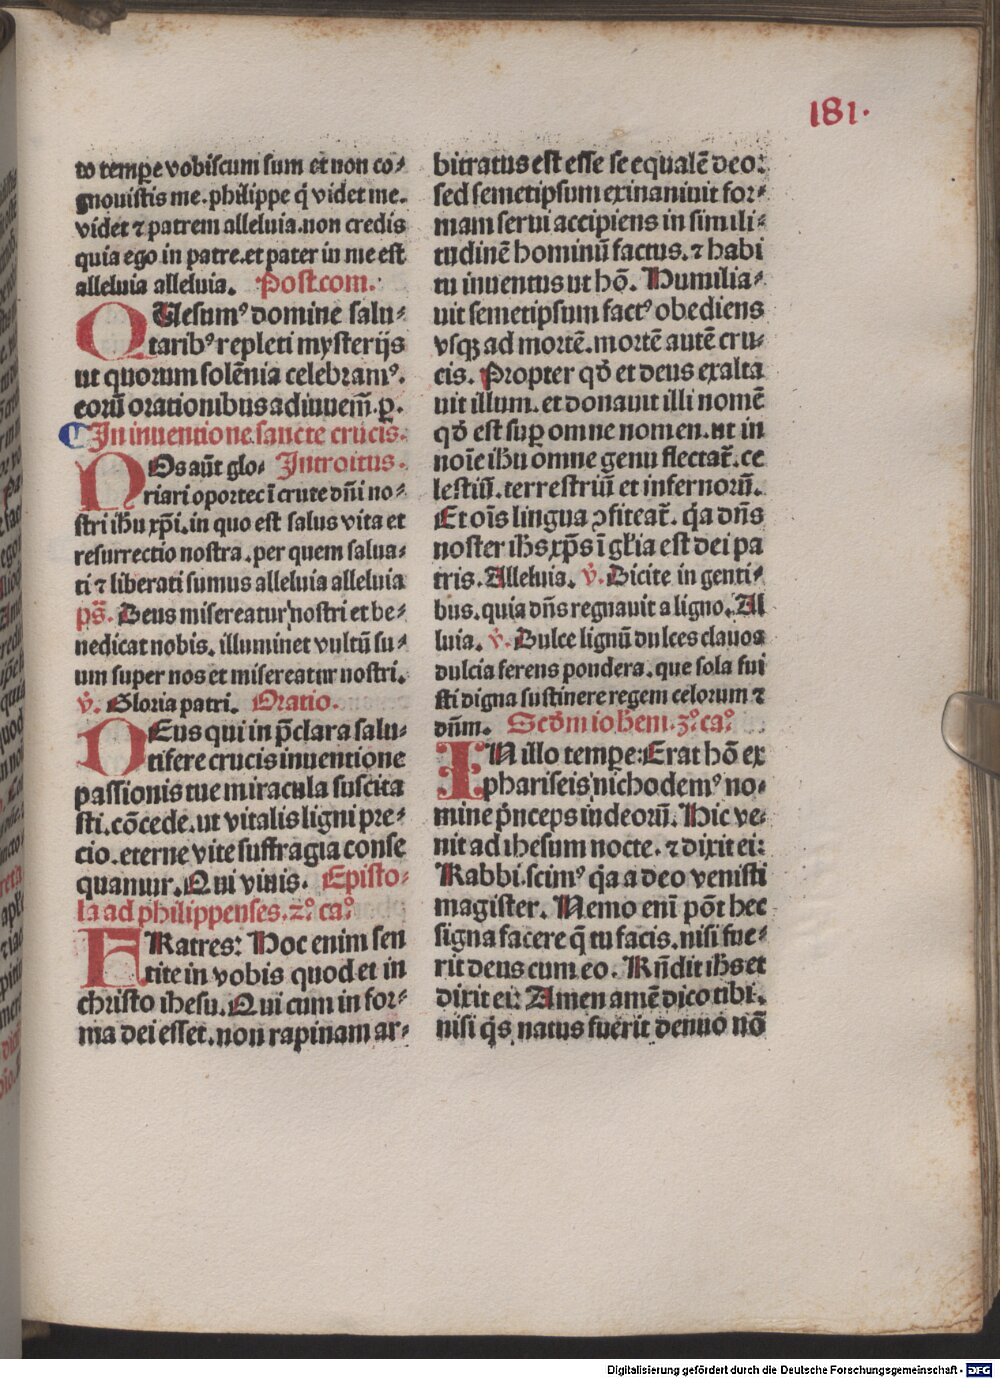 181.
to temꝑe vobiscum sum et non co-
gnouistis me. philippe q̇ videt me.
videt ⁊ patrem alleluia. non credis
quia ego in patre. et pater in me est
alleluia alleluia. Postcom.
QUesumꝰ domine salu-
taribꝰ repleti mysterijs
ut quorum solēnia celebramꝰ.
eorū orationibus adiuuem̄. ꝑ.
In inuentione sancte crucis.
NOs aūt glo- Introitus.
riari oportec ī cruce dn̄i no-
stri ih̄u xp̄i. in quo est salus vita et
resurrectio nostra. per quem salua-
ti ⁊ liberati sumus alleluia alleluia
ps̄. Deus misereatur nostri et be-
nedicat nobis. illuminet vultū su-
um super nos et misereatur nostri.
v̇. Gloria patri. Oratio.
DEus qui in p̄clara salu-
tifere crucis inuentione
passionis tue miracula suscita
sti. cōcede. ut vitalis ligni pre-
cio. eterne vite suffragia conse
quamur. Qui viuis. Episto-
la ad philippenses. 2.° ca.°
FRatres: Hoc enim sen
tite in vobis quod et in
christo ihesu. Qui cum in for-
ma dei esset. non rapinam ar-
bitratus est esse se equalē deo:
sed semetipsum exinaniuit for-
mam serui accipiens in simili-
tudinē hominū factus. ⁊ habi
tu inuentus ut hō. Humilia-
uit semetipsum factꝰ obediens
vsqꝫ ad mortē. mortē autē cru-
cis. Propter qd̄ et deus exalta
uit illum. et donauit illi nomē
qd̄ est suꝑ omne nomen. ut in
noīe ih̄u omne genu flectat̄. ce
lestiū. terrestriū et infernorū.
Et oīs lingua ꝯfiteat̄. q̇a dn̄s
noster ih̄s xp̄s ī gl̄ia est dei pa
tris. Alleluia. v̇. Dicite in genti-
bus. quia dn̄s regnauit a ligno. Al
luia. v̇. Dulce lignū dulces clauos
dulcia ferens pondera. que sola fui
sti digna sustinere regem celorum ⁊
dn̄m. Scd̄m iohem. 3.° ca.°
IN illo temꝑe: Erat hō ex
phariseis nichodemꝰ no-
mine ṗnceps iudeorū. Hic ve-
nit ad ihesum nocte. ⁊ dixit ei:
Rabbi. scimꝰ q̇a a deo venisti
magister. Nemo enī pōt hec
signa facere q̄ tu facis. nisi fue-
rit deus cum eo. Rn̄dit ih̄s et
dixit ei: Amen amē dico tibi.
nisi q̇s natus fuerit denuo nō
Digitalisierung gefördert durch die Deutsche Forschungsgemeinschaft - DFG